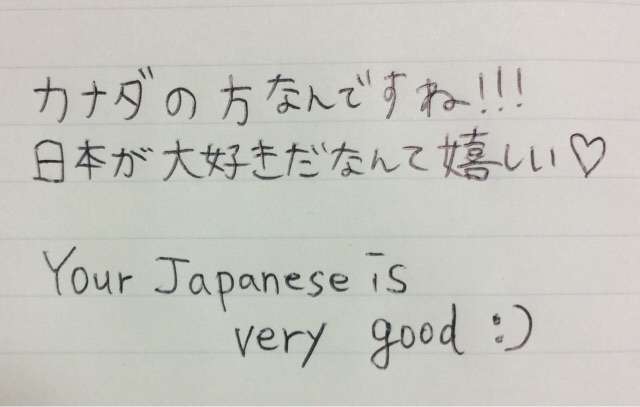 カナダの方なんですね!!!
日本が大好きだなんて嬉しい♡
Your Japanese is
very good :)